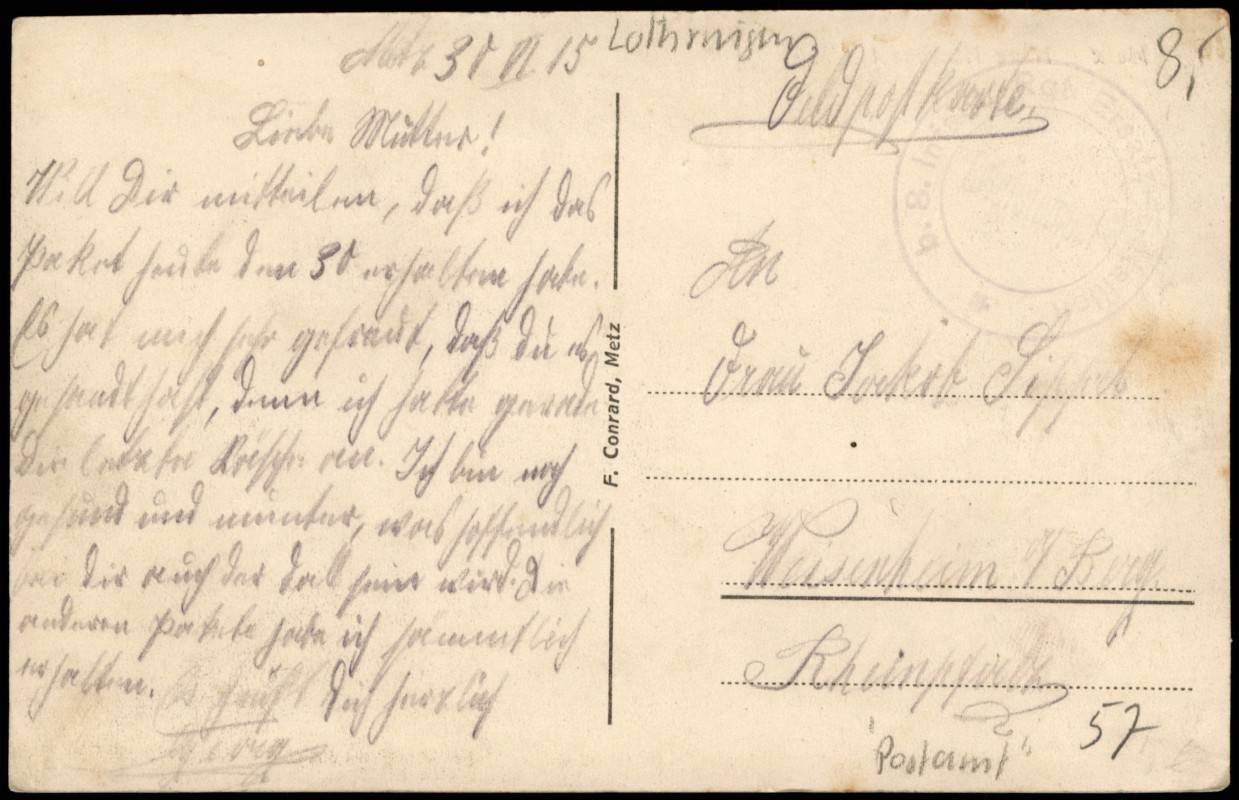 Metz 30 VI 15
Liebe Mutter!
Will Dir mitteilen, daß ich das
Paket heute den 30 erhalten habe.
Es hat mich sehr gefreut, daß Du es
gesandt hast, denn ich hatte gerade
die letzte Wäsche an. Ich bin noch
gesund und munter, was hoffentlich
bei Dir auch der Fall sein wird. Die
anderen Pakete habe ich sämmtlich
erhalten. Es grüßt Dich herzlich
Georg
F. Conrard, Metz
Lothringen
8,-
Feldpostkarte
b. 8. Inf.
An
Frau Jakob
Weisenheim a/Berg
Rheinpfalz
"Postamt"
57